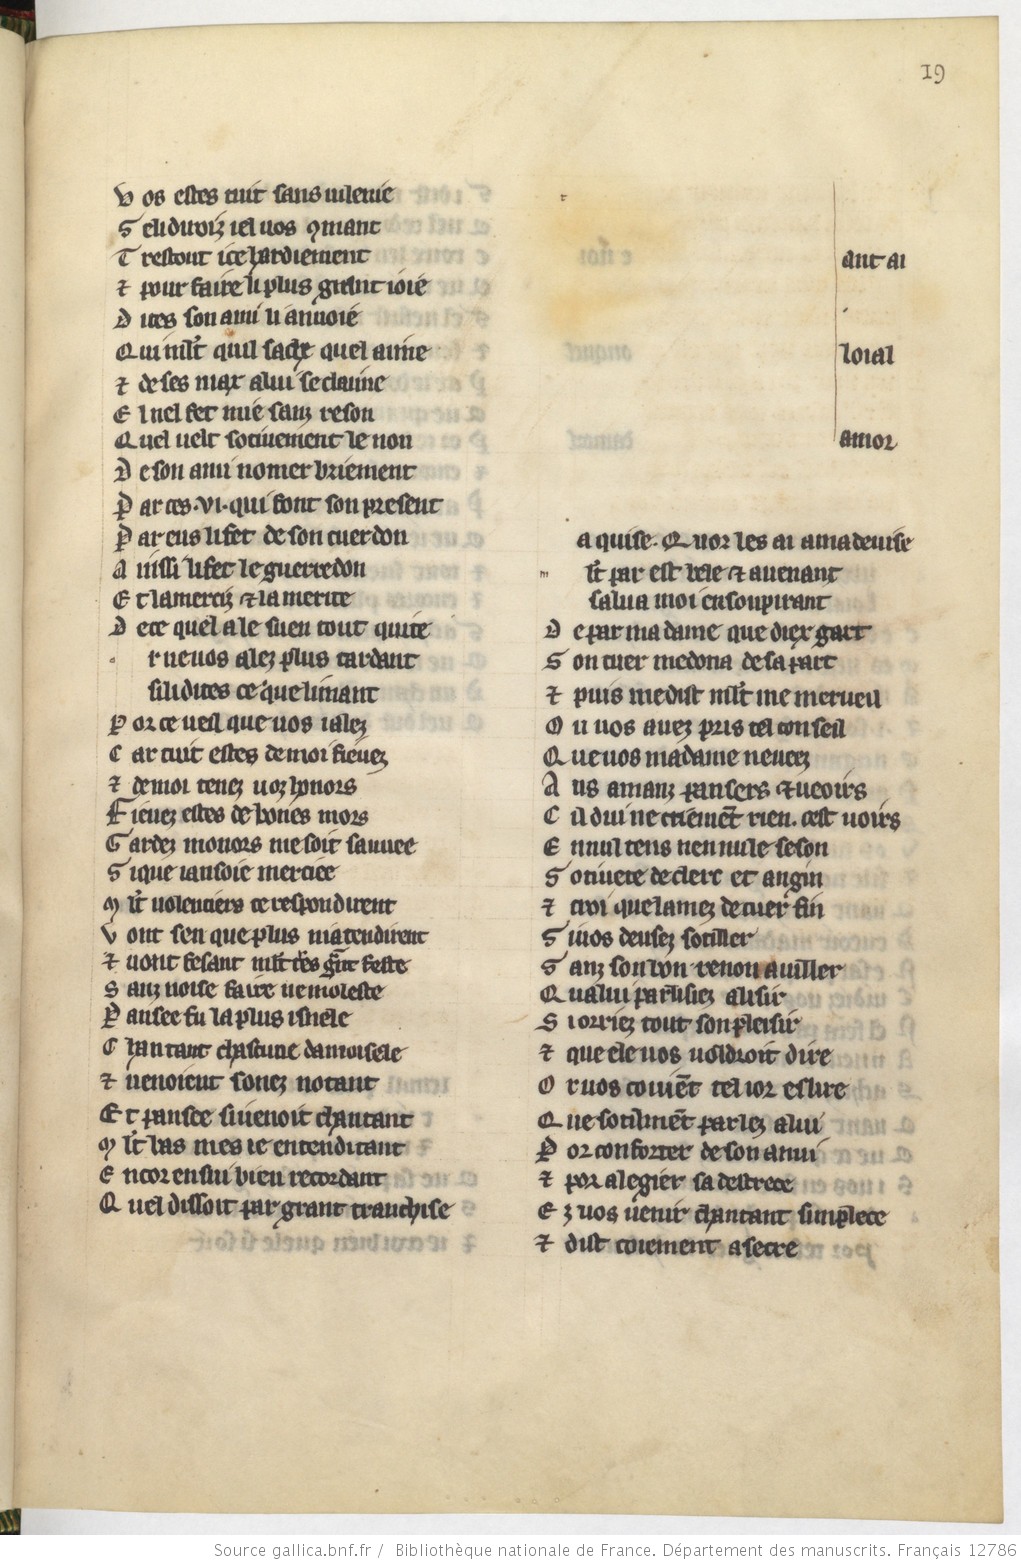 19
Vos estes tuit sans vilenie
Trestout ice hardiement
⁊ pour faire li plus grant ioie
Dites son ami li anuoie
Qui mlt̃ quil sache quel aime
⁊ de ses max a lui se claime
El nel fet mie sanz reson
Quel uelt sotiuement le non
De son ami nomer briement
Par ces .vi. qui font son present
Par eus li fet de son cuer don
Aussi li fet le guerredon
Et la merciz ⁊ la merite
De ce quel a le suen tout quite
r ne uos alez plus tardant
si li dites ce que li mant
Por ce ueil que uos i alez
Car tuit estes de moi fieuez
⁊ de moi tenez uoz honors
Fieuez estes de bones mors
Gardez monors me soit sauuee
Si que ian soie merciee
Mlt̃ uolentiers ce respondirent
Vont sen que plus ni atendirent
Sanz noise faire ne moleste
Pansee fu la plus isnele
Chantant chascune damoisele
⁊ uenoient sonez notant
Et pansee si uenoit chantant
Mlt̃ bas mes ie entendi tant
Encor en sui bien recordant
Quel dissoit par grant franchise
ant ai
loial
amor
a quise. Quor les ai a ma deuise
lt̃ par est bele ⁊ auenant
salua moi en soupirant
De par ma dame que diex gart
Son cuer me dona de sa part
⁊ puis me dist mlt̃ me merueil
Ou uos auez pris tel conseil
Que uos ma dame ne ueez
Ans amanz pansers ⁊ ueoirs
En nul tens nen nule seson
Sotiuete de clerc et angin
⁊ croi que lamez de cuer fin
Sanz son bon renon auillier
Qua lui parlisiez a lisir
Si orriez tout son pleisir
⁊ que ele uos uoldroit dire
Or uos couiẽt tel ior eslire
Que sotilmẽt parlez a lui
Por conforter de son anui
⁊ por alegier sa destrece
Ez uos uenir chantant simplece
⁊ dist coiement a secre
Source gallica.bnf.fr / Bibliothèque nationale de France. Département des manuscrits. Français 12786